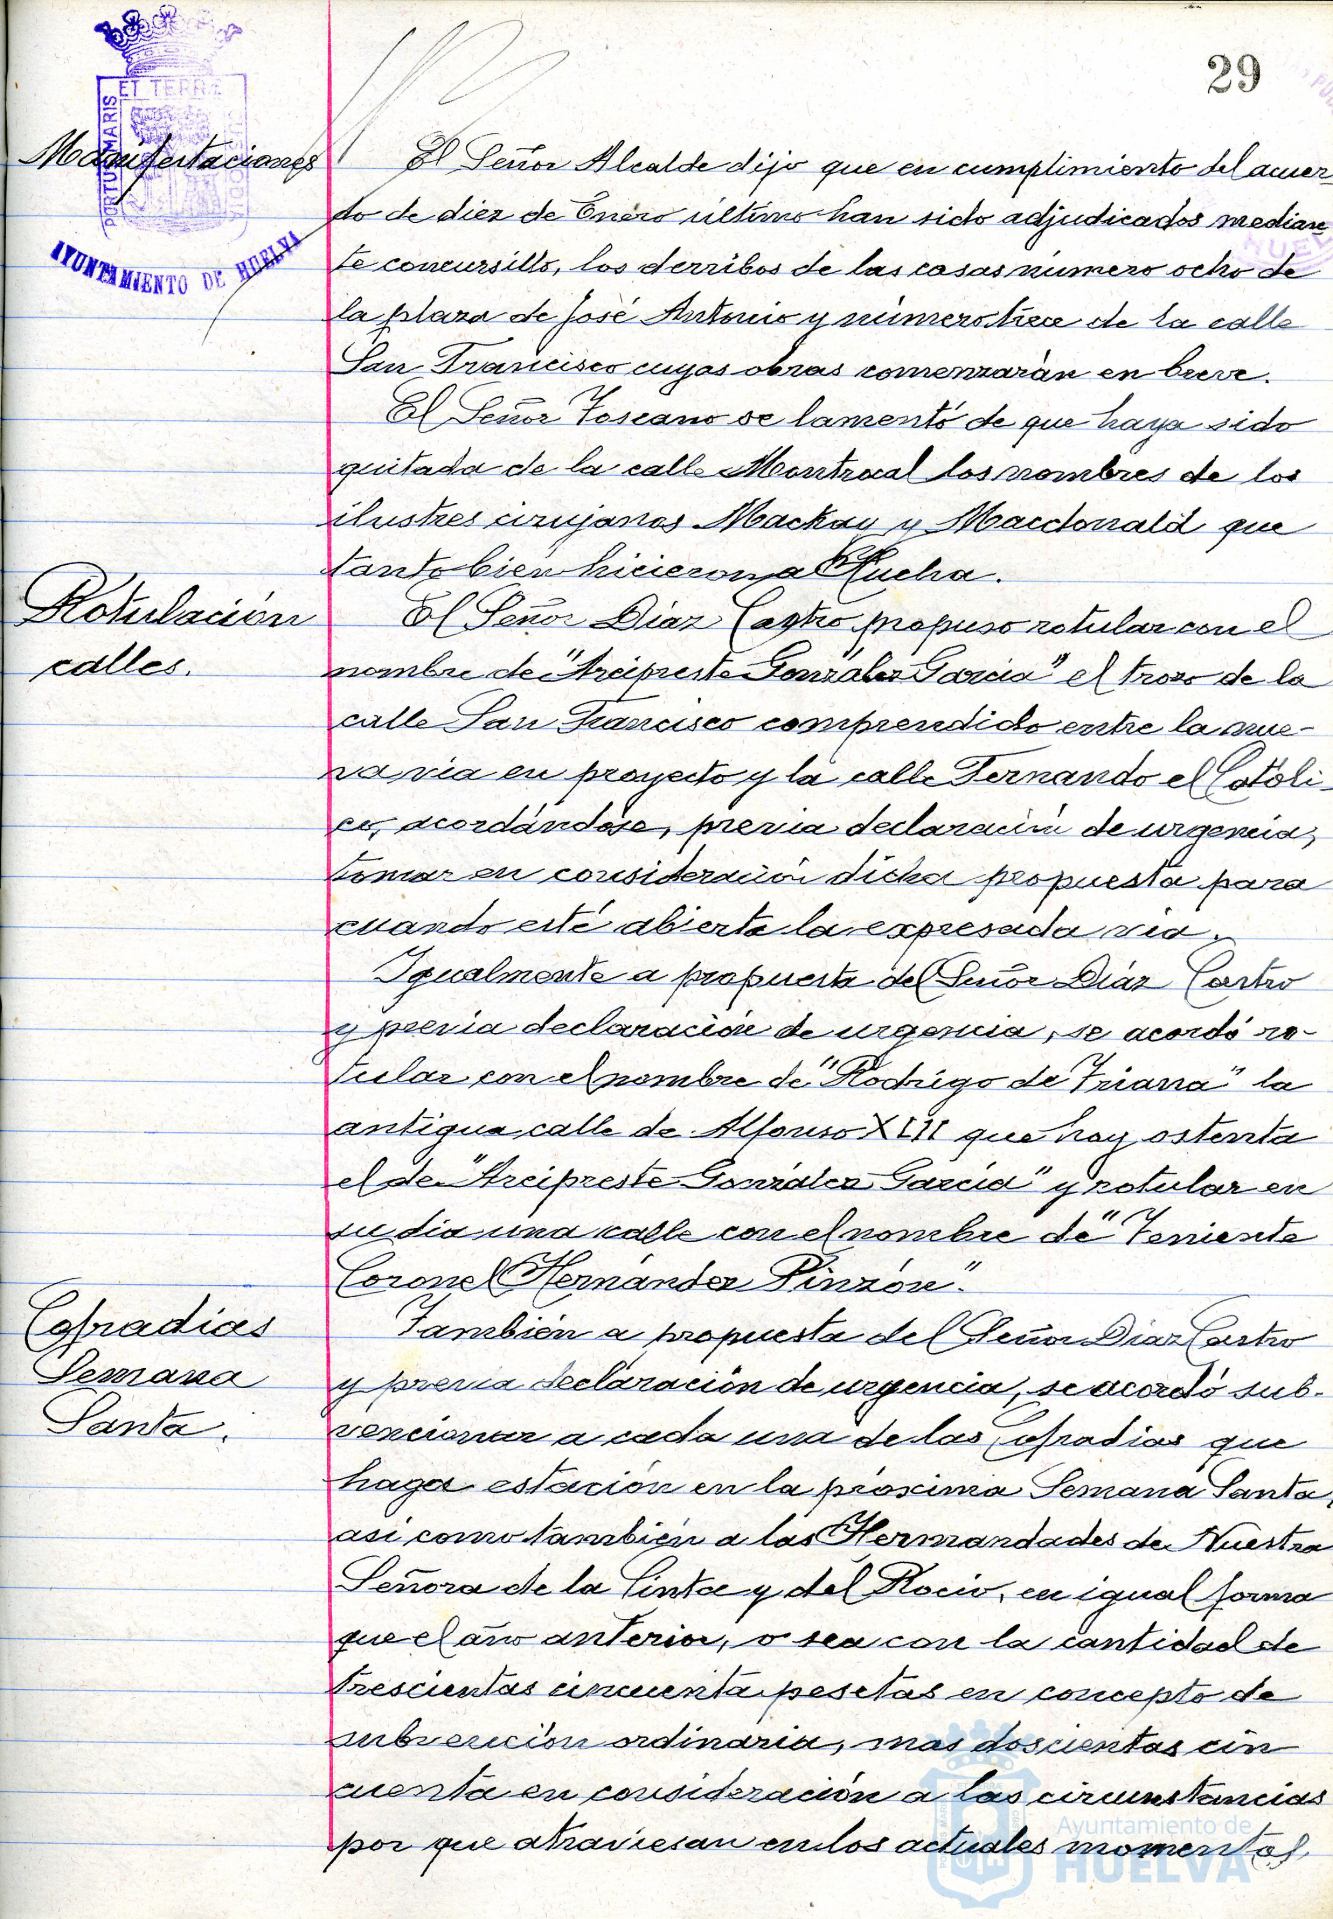 29
ET TERRÆ
PORTUS MARIS
CUSTODIA
AYUNTAMIENTO DE HUELVA
Manifestaciones
El Señor Alcalde dijo que en cumplimiento del acuer-
do de diez de Enero último han sido adjudicados median-
te concursillo, los derribos de las casas número ocho de
la plaza de José Antonio y número trece de la calle
San Francisco cuyas obras comenzarán en breve.
El Señor Toscano se lamentó de que haya sido
quitada de la calle Montrocal los nombres de los
ilustres cirujanos Mackay y Macdonald que
tanto bien hicieron a Huelva.
Rotulación
calles.
El Señor Díaz Castro propuso rotular con el
nombre de "Arcipreste González García" el trozo de la
calle San Francisco comprendido entre la nue-
va via en proyecto y la calle Fernando el Católi-
co, acordándose, previa declaración de urgencia,
tomar en consideración dicha propuesta para
cuando esté abierta la expresada via.
Igualmente a propuesta del Señor Díaz Castro
y previa declaración de urgencia, se acordó ro-
tular con el nombre de "Rodrigo de Triana" la
antigua calle de Alfonso XIII que hoy ostenta
el de "Arcipreste González García" y rotular en
su dia una calle con el nombre de "Teniente
Coronel Hernández Pinzón".
Cofradías
Semana
Santa.
También a propuesta del Señor Díaz Castro
y previa declaración de urgencia, se acordó sub-
vencionar a cada una de las Cofradias que
haga estación en la próxima Semana Santa,
asi como también a las Hermandades de Nuestra
Señora de la Cinta y del Rocio, en igual forma
que el año anterior, o sea con la cantidad de
trescientas cincuenta pesetas en concepto de
subvención ordinaria, mas doscientas cin
cuenta en consideración a las circunstancias
por que atraviesan en los actuales momentos
Ayuntamiento de
HUELVA